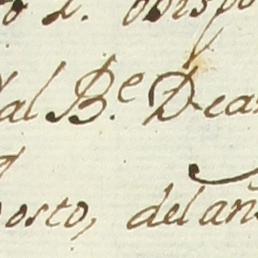 obispo
al B.e Dean
osto, del añ